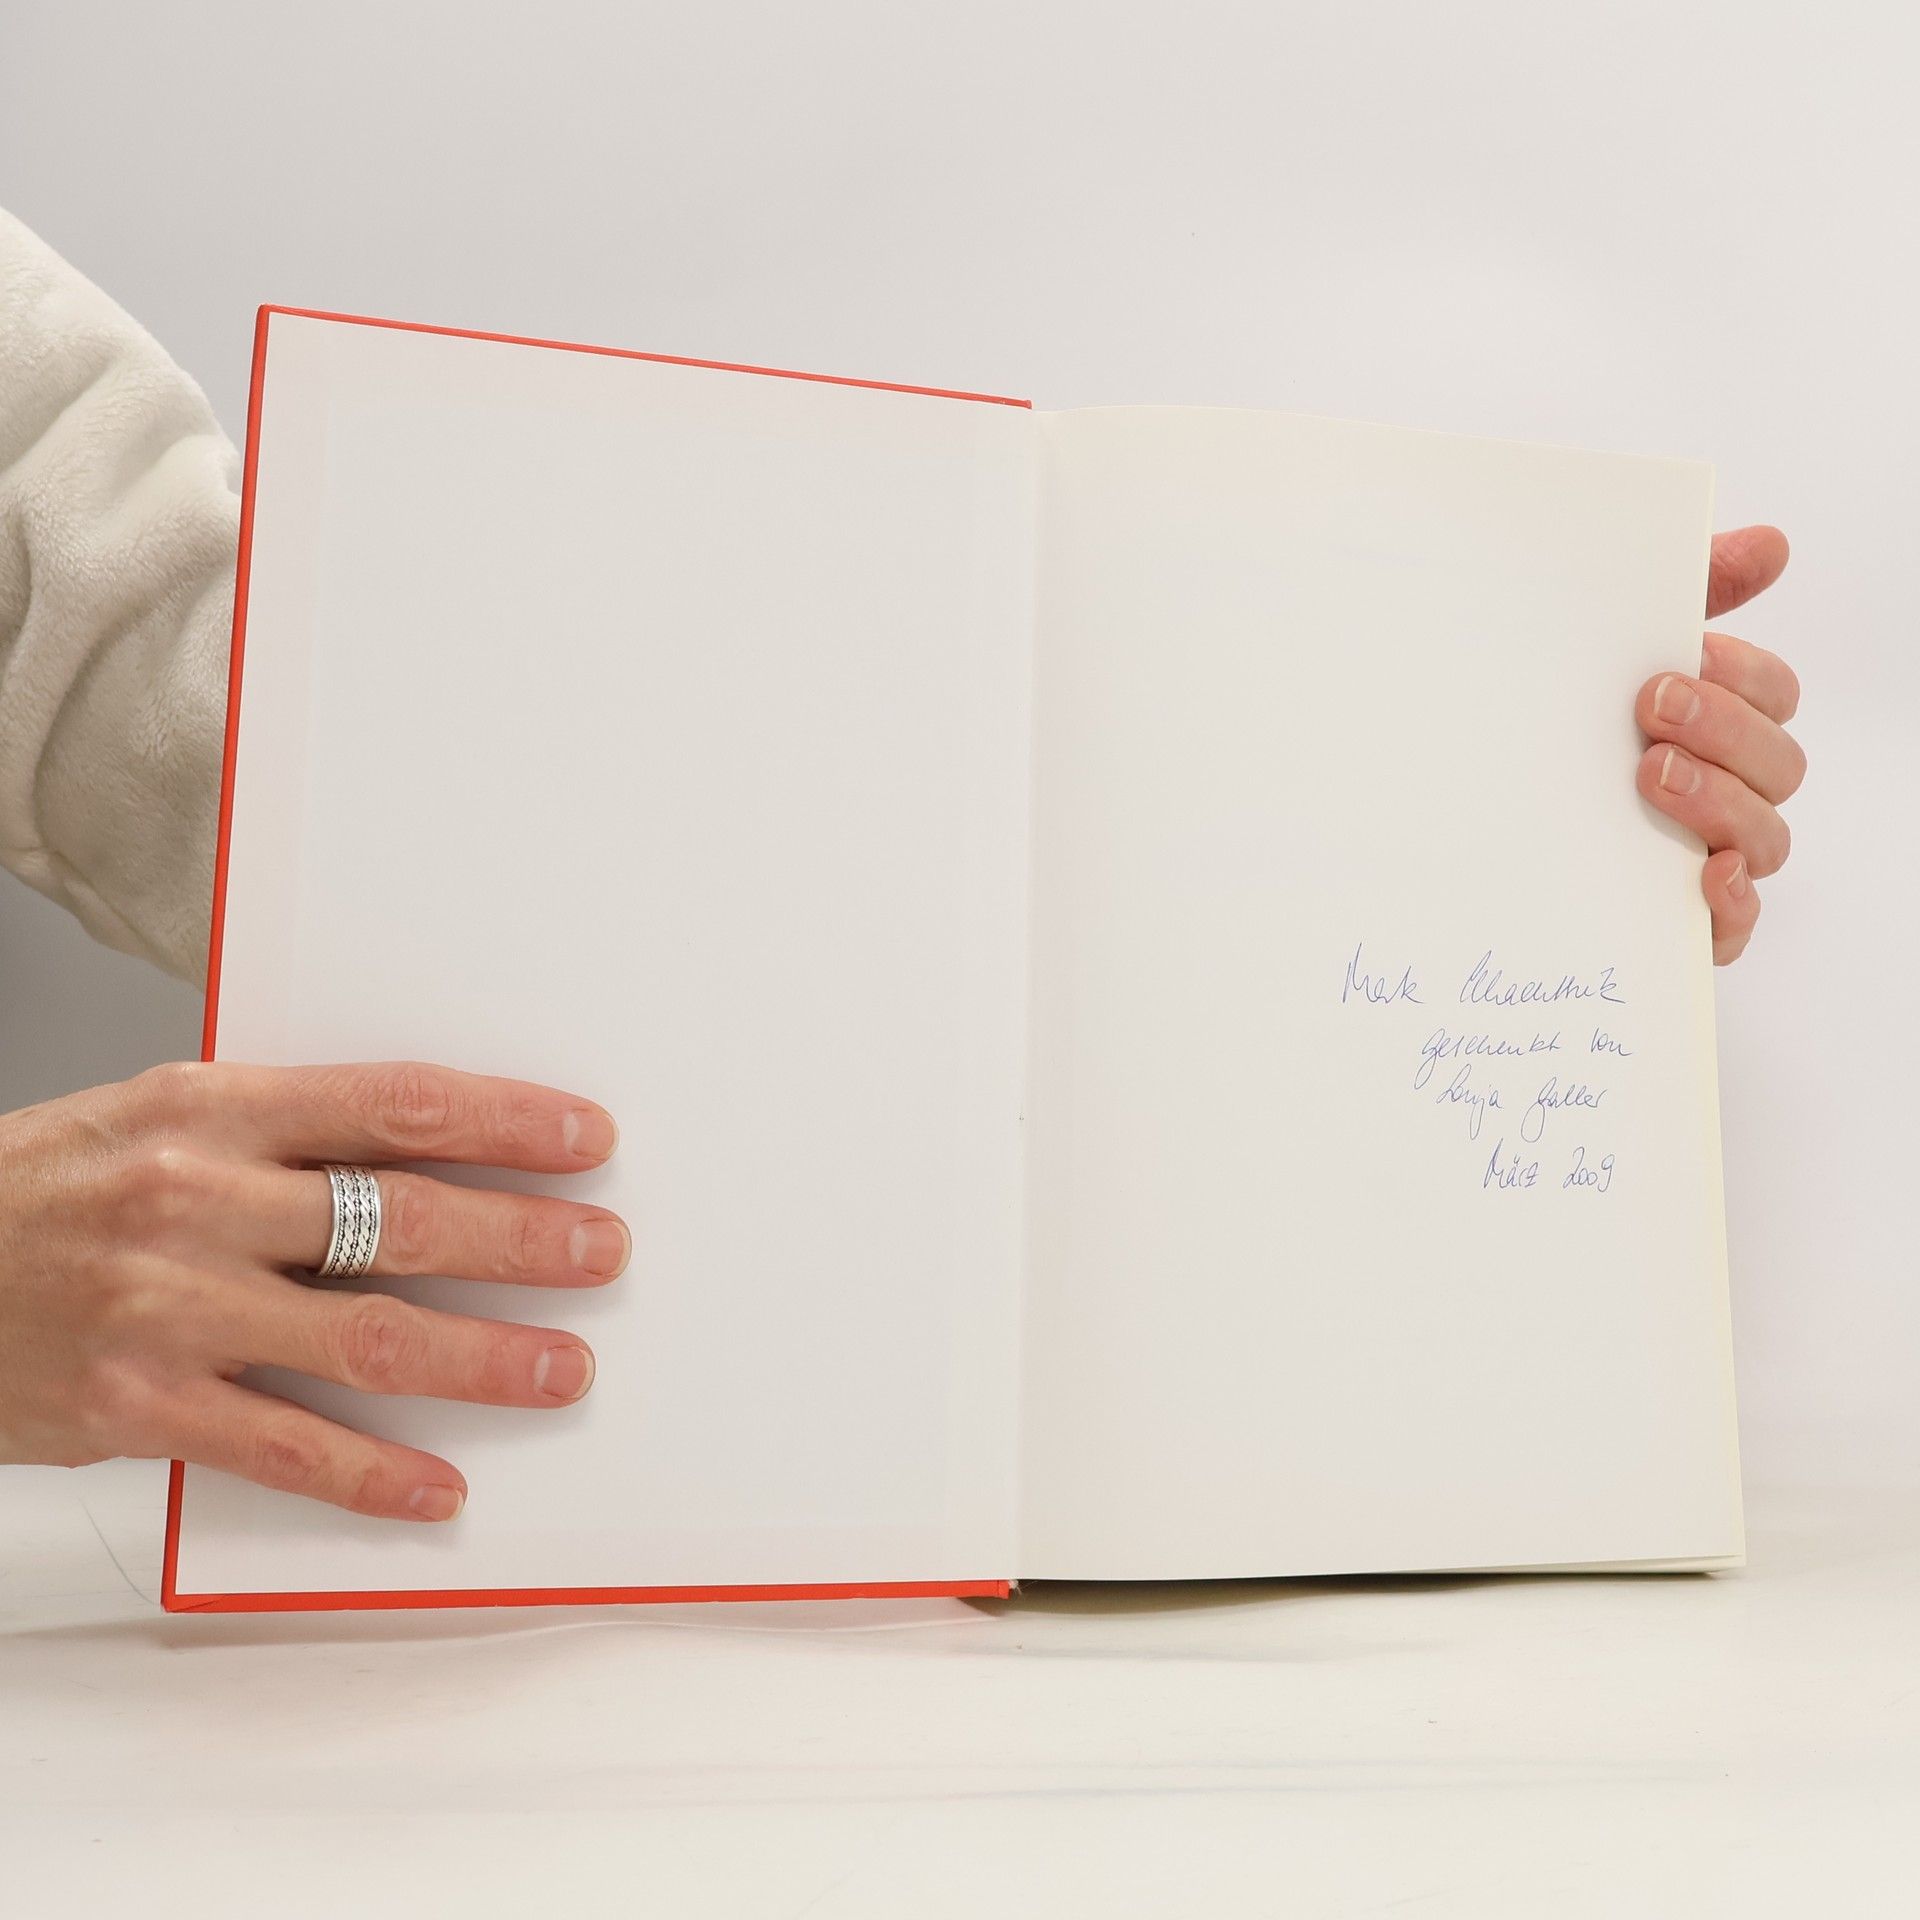 Mark
geschenkt von
Sonja Galler
März 2009